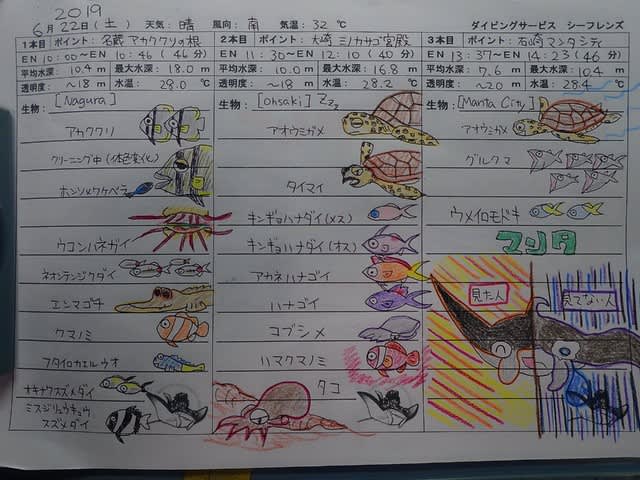 2019
6月22日(土) 天気:晴 風向:南 気温:32℃ ダイビングサービス シーフレンズ
1本目 ポイント:名蔵 アカククリの根
EN 10:00〜EN 10:46(46分)
平均水深:10.4m 最大水深:18.0m
透明度:~18m 水温:28.0℃
生物: [Nagura]
アカククリ
クリーニング中(体色変化)
ホンソメワケベラ
ウコンハネガイ
ネオンテンジクダイ
エンマゴチ
クマノミ
フタイロカエルウオ
オキナワスズメダイ
ミスジリュウキュウ
スズメダイ
2本目 ポイント:大崎 ミノカサゴ宮殿
EN 11:30〜EN 12:10(40分)
平均水深:10.0m 最大水深:16.8m
透明度:~18m 水温:28.2℃
生物: [Ohsaki] Zzz
アオウミガメ
タイマイ
キンギョハナダイ(メス)
キンギョハナダイ(オス)
アカネハナゴイ
ハナゴイ
コブシメ
ハマクマノミ
タコ
3本目 ポイント:石崎 マンタシティ
EN 13:37〜EN 14:23(46分)
平均水深:7.6m 最大水深:10.4m
透明度:~20m 水温:28.4℃
生物: [Manta City]
アオウミガメ
グルクマ
ウメイロモドキ
マンタ
見た人
見てない人